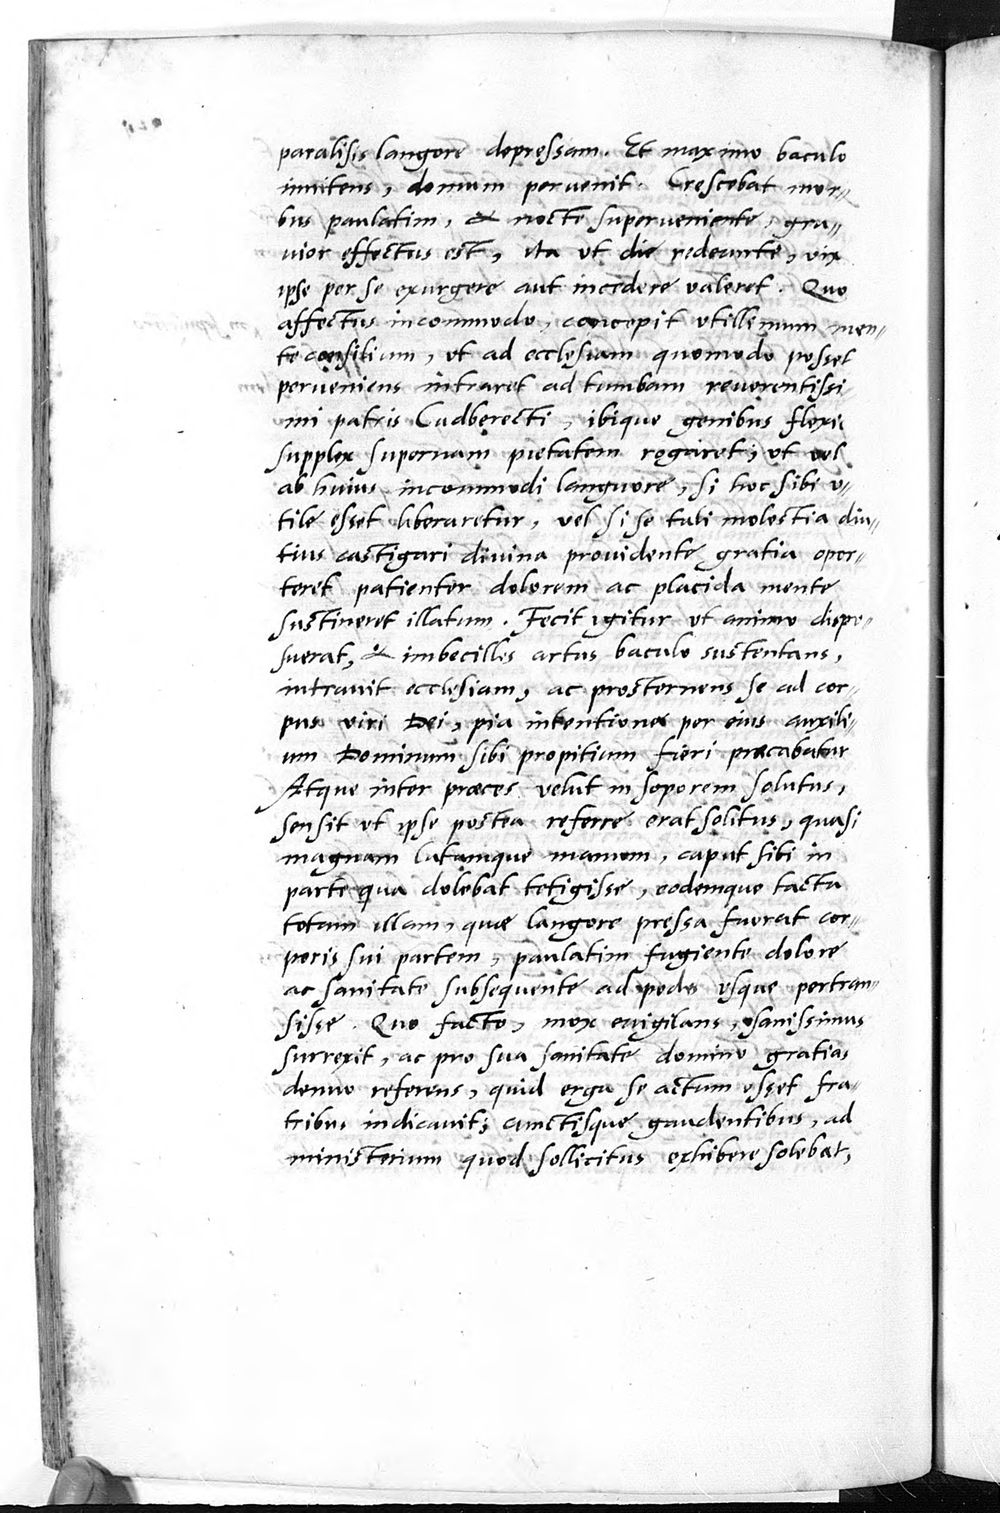 paralisis langore depressam. Et maximo baculo
innitens, domum pervenit. Crescebat mor-
bus paulatim, & nocte superveniente, gra-
vior effectus est, ita ut die redeunte, vix
ipse per se exurgere aut incedere valeret. Quo
affectus incommodo, concepit utillimum men-
te consilium, ut ad ecclesiam quomodo posset
perveniens intraret ad tumbam reverentissi
mi patris Cudberecti, ibique genibus flexis
supplex supernam pietatem rogaret, ut vel
ab huius incommodi languore, si hoc sibi u-
tile esset liberaretur, vel si se tali molestia diu-
tius castigari divina providente gratia opor-
teret patienter dolorem ac placida mente
sustineret illatum. Fecit igitur ut animo dispo-
suerat, & imbecilles artus baculo sustentans,
intravit ecclesiam, ac prosternens se ad cor-
pus viri Dei, pia intentione per eius auxili-
um Dominum sibi propitium fieri præcabatur
Atque inter præces velut in soporem solutus,
sensit ut ipse postea referre erat solitus, quasi
magnam latamque manum, caput sibi in
parte qua dolebat tetigisse, eodemque tactu
totam illam, quæ langore pressa fuerat cor-
poris sui partem, paulatim fugiente dolore
ac sanitate subsequente ad pedes usque pertran-
sisse. Quo facto, mox evigilans, sanissimus
surrexit, ac pro sua sanitate domino gratias
denuo referens, quid erga se actum esset fra-
tribus indicavit; cunctisque gaudentibus, ad
ministerium quod sollicitus exhibere solebat,